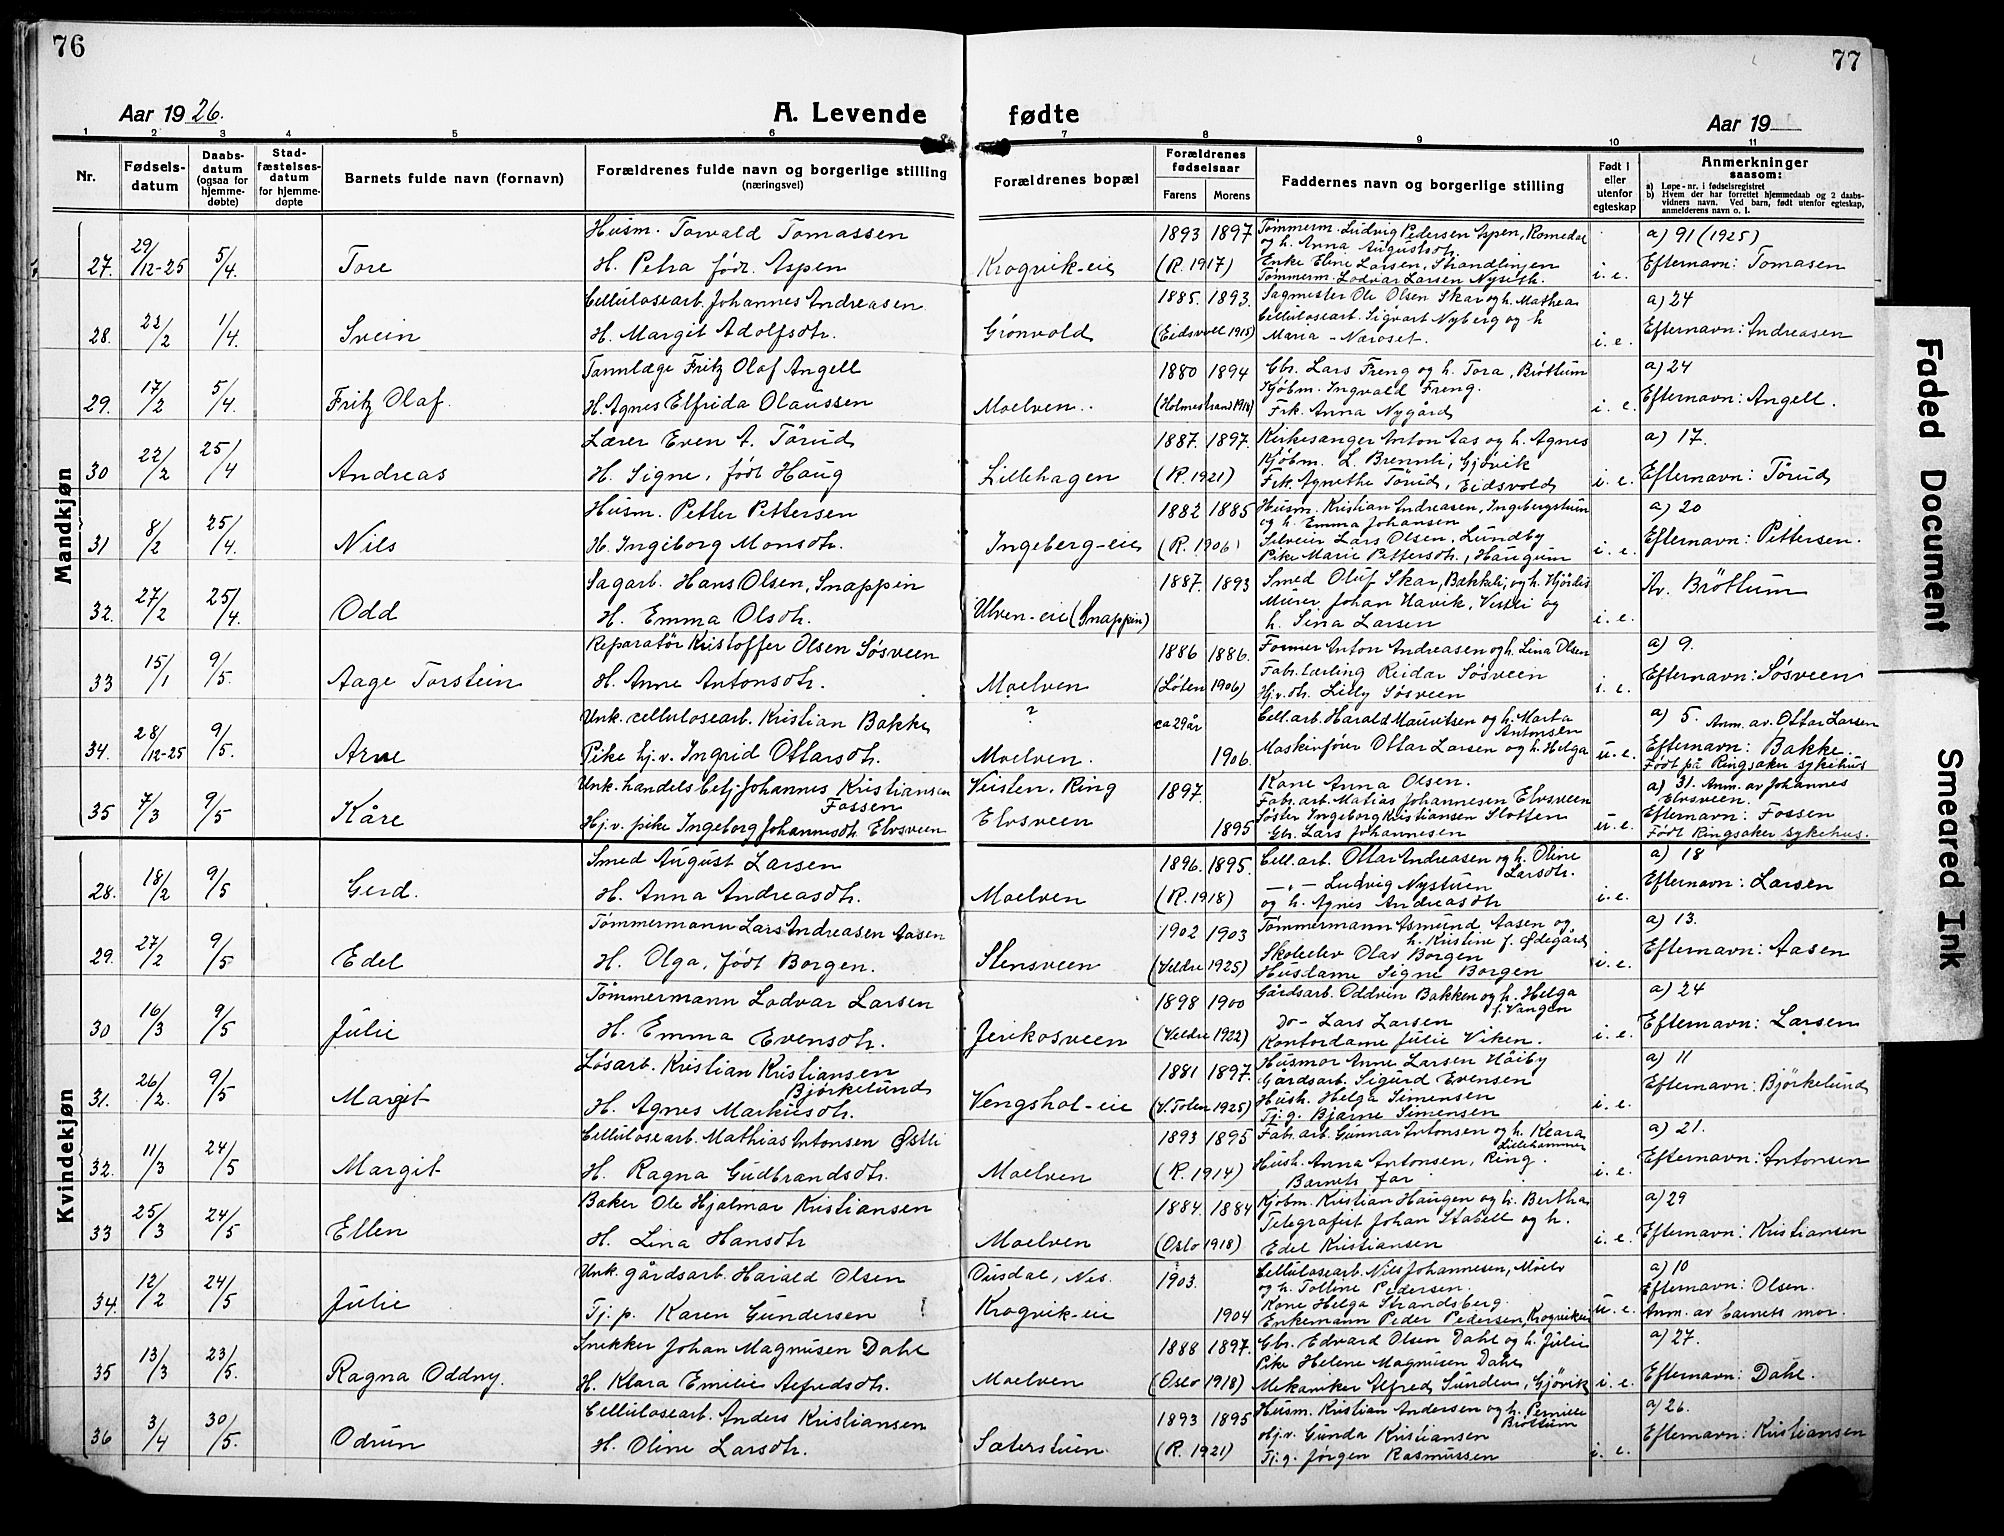 76
77
Aar 1926.
A. Levende
fødte
Aar 19
1 2 3 4 5 6 7 8 9 10 11
Nr.
Fødsels-
datum
Daabs-
datum
(ogsaa for
hjemme-
døbte)
Stad-
fæstelses-
datum
for hjemme-
døpte
Barnets fulde navn (fornavn)
Forældrenes fulde navn og borgerlige stilling
(næringsvei)
Forældrenes bopæl
Forældrenes
fødselsaar
Farens Morens
Faddernes navn og borgerlige stilling
Født i
eller
utenfor
egteskap
Anmerkninger
saasom:
a) Løpe-nr. i fødselsregistret
b) Hvem der har forrettet hjemmedaab og 2 daabs-
vidners navn. Ved barn, født utenfor egteskap,
anmelderens navn o. l.
Mandkjøn
27. 29/12-25 5/4. Tore
Husm. Torvald Tomassen
H. Petra født Aspen
Krogvik-eie
1893 1897
(R. 1917)
Tømmerm. Ludvig Pedersen Aspen, Romedal
og h. Anna Augustsdtr.
Enke Eline Larsen, Strandlinjen
Tømmerm. Lodvar Larsen Nyseth.
i. e.
a) 91 (1925)
Efternavn: Tomasen
28. 22/2 1/4. Svein
Cellulosearb. Johannes Andreasen
H. Margit Adolfsdtr.
Grønvold
1885. 1893.
(Eidsvoll 1915)
Sagmester Ole Olsen Skar og h. Mathea
Cellulosearb. Sigvart Nyberg og h
Maria - Næroset.
i. e.
a) 24
Efternavn: Andreasen
29. 17/2 5/4. Fritz Olaf.
Tannlæge Fritz Olaf Angell
H. Agnes Elfrida Olaussen
Moelven.
1880 1894
(Holmestrand 1918)
Gbr. Lars Freng og h. Tora, Brøttum
Kjøbm. Ingvald Freng.
Frk. Anna Nygård
i. e.
a) 24
Efternavn: Angell.
30 22/2 25/4 Andreas
Lærer Even A. Tørud
H. Signe, født Haug
Lillehagen
1887. 1897.
(R. 1921)
Kirkesanger Anton Aas og h. Agnes
Kjøbm. L. Brennli, Gjøvik
Frk. Agnethe Tørud, Eidsvold
i. e.
a) 17.
Efternavn: Tørud
31 8/2 25/4. Nils
Husm. Petter Pettersen
H. Ingeborg Monsdtr.
Ingeberg-eie
1882 1885
(R. 1906)
Husm. Kristian Andreasen, Ingebergstuen
og h. Emma Johansen
Selveier Lars Olsen, Lundby
Pike Marie Pettersdtr., Haugum
i. e.
a) 20
Efternavn: Pettersen.
32. 27/2 25/4. Odd
Sagarb. Hans Olsen, Snappin
H. Emma Olsdtr.
Ulven-eie (Snappin)
1887. 1893
Smed Oluf Skar, Bakkeli, og h. Hjørdis
Murer Johan Havik, Vestli og
h. Sina Larsen
i. e.
Av. Brøttum
33 15/1 9/5. Aage Torstein
Reparatør Kristoffer Olsen Søsveen
H. Anne Antonsdtr.
Moelven
1886 1886.
(Løten 1906)
Former Anton Andreasen og h. Lina Olsen
Fab. lærling Reidar Søsveen
Hj.v. dtr. Lilly Søsveen
i. e.
a) 9.
Efternavn: Søsveen
34. 28/12-25 9/5. Arne
Unk. cellulosearb. Kristian Bakke
Pike hj.v. Ingrid Ottarsdtr.
?
Moelven.
ca 29 år
1906.
Cell.arb. Harald Mauritsen og h. Marta
Antonsen
Maskinfører Ottar Larsen og h. Helga
u. e.
a) 5. Anm. av. Ottar Larsen
Efternavn: Bakke.
Født på Ringsaker sykehus
35 7/3 9/5 Kåre
Unk. handelsbetj. Johannes Kristiansen
Fossen
Hj.v. pike Ingeborg Johannesdtr. Elvsveen
Veisten, Ring
Elvsveen
1897.
1895
Kone Anna Olsen.
Fab. arb. Matias Johannesen Elvsveen
Søster Ingeborg Kristiansen Slotten
Gbr. Lars Johannesen
u. e.
a) 31. Anm. av Johannes
Elvsveen.
Efternavn: Fossen
Født Ringsaker sykehus.
Kvindekjøn
28. 18/2 9/5 Gerd.
Smed August Larsen
H. Anna Andreasdtr.
Moelven
1896. 1895.
(R. 1918)
Cell. arb. Ottar Andreasen og h. Oline
Larsdtr.
-„- Ludvig Nystuen
og h. Agnes Andreasdtr
i. e.
a) 18
Efternavn: Larsen
29. 27/2 9/5 Edel
Tømmermann Lars Andreasen Aasen
H. Olga, født Borgen.
Stensveen
1902 1903
(Veldre 1925)
Tømmermann Asmund Aasen og
h. Kristine f. Ødegård
Skoleelev Olav Borgen
Husdame Signe Borgen
i. e.
a) 13.
Efternavn: Aasen
30 16/3 9/5 Julie
Tømmermann Lodvar Larsen
H. Emma Evensdtr.
Jerikosveen
1898 1900
(Veldre 1922)
Gårdsarb. Oddvin Bakken og h. Helga
f. Vangen
Do- Lars Larsen
Kontordame Julie Viken.
i. e.
a) 24
Efternavn: Larsen
31. 26/2. 9/5 Margit
Løsarb. Kristian Kristiansen
Bjørkelund
H. Agnes Markusdtr.
Vengshol-eie
1881 1897.
(V. Toten 1925)
Husmor Anne Larsen Håiby
Gårdsarb. Sigurd Evensen
Hush. Helga Simensen
Tj.g. Bjarne Simensen
i. e.
a) 11
Efternavn: Bjørkelund
32. 11/3 24/5 Margit
Cellulosearb. Mathias Antonsen Østli
H. Ragna Gudbrandsdtr.
Moelven
1893 1895
(R. 1914)
Fab. arb. Gunnar Antonsen og h. Klara
Lillehammer
Hush. Anna Antonsen, Ring.
Barnets far
i. e.
a) 21.
Efternavn: Antonsen
33 25/3 24/5 Ellen
Baker Ole Hjalmar Kristiansen
H. Lina Hansdtr
Moelven
1884. 1884
(Oslo 1918)
Kjøbm. Kristian Haugen og h. Bertha
Telegrafist Johan Stabell og h.
Edel Kristiansen
i. e.
a) 29
Efternavn: Kristiansen
34. 12/2 24/5 Julie
Unk. gårdsarb. Harald Olsen
Tj. p. Karen Gundersen
Dusdal, Nes.
Krogvik-eie
1903.
1904
Cellulosearb. Nils Johannesen, Moelv
og h. Tolline Pedersen.
Kone Helga Strandsberg
Enkemann Peder Pedersen, Krogvikeie
u. e.
a) 10
Efternavn: Olsen.
Anm. av barnets mor.
35 13/3 23/5. Ragna Oddny.
Snekker Johan Magnusen Dahl
H. Klara Emilie Alfredsdtr.
Moelven
1888 1897.
(Oslo 1918)
Gbr. Edvard Olsen Dahl og h. Julie
Pike Helene Magnusen Dahl
Mekaniker Alfred Sunden, Gjøvik
i. e.
a) 27.
Efternavn: Dahl.
36 3/4 30/5. Odrun
Cellulosearb. Anders Kristiansen
H. Oline Larsdtr.
Sæterstuen.
1893 1895
(R. 1921)
Husm. Kristian Andersen og h. Pernille
Brøttum
Hj.v. Gunda Kristiansen
Tj. g. Jørgen Rasmussen
i. e.
a) 26.
Efternavn: Kristiansen
Faded Document
Smeared Ink